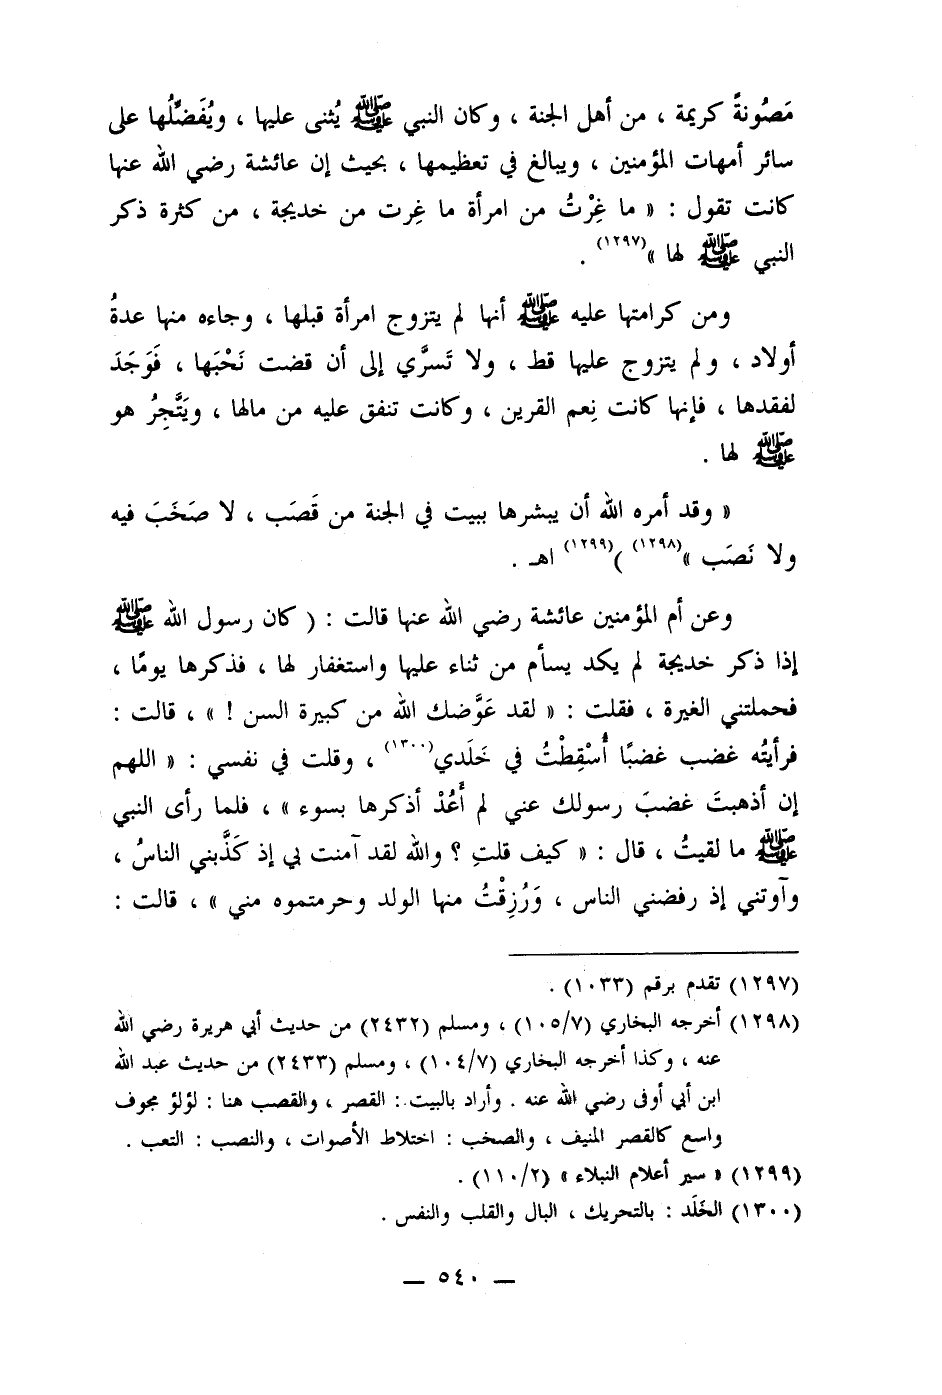 مَصُونةً كريمة ، من أهل الجنة ، وكان النبي ﷺ يُثنى عليها ، ويُفَضِّلُها على
سائر أمهات المؤمنين ، ويبالغ في تعظيمها ، بحيث إن عائشة رضي الله عنها
كانت تقول : « ما غِرْتُ من امرأة ما غِرت من خديجة ، من كثرة ذكر
النبي ﷺ لها »(١٢٩٧) .
ومن كرامتها عليه ﷺ أنها لم يتزوج امرأة قبلها ، وجاءه منها عدةُ
أولاد ، ولم يتزوج عليها قط ، ولا تَسرَّي إلى أن قضت نَحْبَها ، فَوَجَدَ
لفقدها ، فإنها كانت نِعم القرين ، وكانت تنفق عليه من مالها ، ويَتَّجِرُ هو
ﷺ لها .
« وقد أمره الله أن يبشرها ببيت في الجنة من قَصَب ، لا صَخَبَ فيه
ولا نَصَب »(١٢٩٨) )(١٢٩٩) اهـ .
وعن أم المؤمنين عائشة رضي الله عنها قالت : ( كان رسول الله ﷺ
إذا ذكر خديجة لم يكد يسأم من ثناء عليها واستغفار لها ، فذكرها يومًا ،
فحملتني الغيرة ، فقلت : « لقد عَوَّضك الله من كبيرة السن ! » ، قالت :
فرأيتُه غضب غضبًا أُسْقِطْتُ في خَلَدي(١٣٠٠) ، وقلت في نفسي : « اللهم
إن أذهبتَ غضبَ رسولك عني لم أَعُدْ أذكرها بسوء » ، فلما رأى النبي
ﷺ ما لقيتُ ، قال : « كيف قلتِ ؟ والله لقد آمنت بي إذ كَذَّبني الناسُ ،
وآوتني إذ رفضني الناس ، وَرُزِقْتُ منها الولد وحرمتموه مني » ، قالت :
(١٢٩٧) تقدم برقم (١٠٣٣) .
(١٢٩٨) أخرجه البخاري (١٠٥/٧) ، ومسلم (٢٤٣٢) من حديث أبي هريرة رضي الله
عنه ، وكذا أخرجه البخاري (١٠٤/٧) ، ومسلم (٢٤٣٣) من حديث عبد الله
ابن أبي أوفى رضي الله عنه . وأراد بالبيت : القصر ، والقصب هنا : لؤلؤ مجوف
واسع كالقصر المنيف ، والصخب : اختلاط الأصوات ، والنصب : التعب .
(١٢٩٩) « سير أعلام النبلاء » (١١٠/٢) .
(١٣٠٠) الخَلَد : بالتحريك ، البال والقلب والنفس .
— ٥٤٠ —